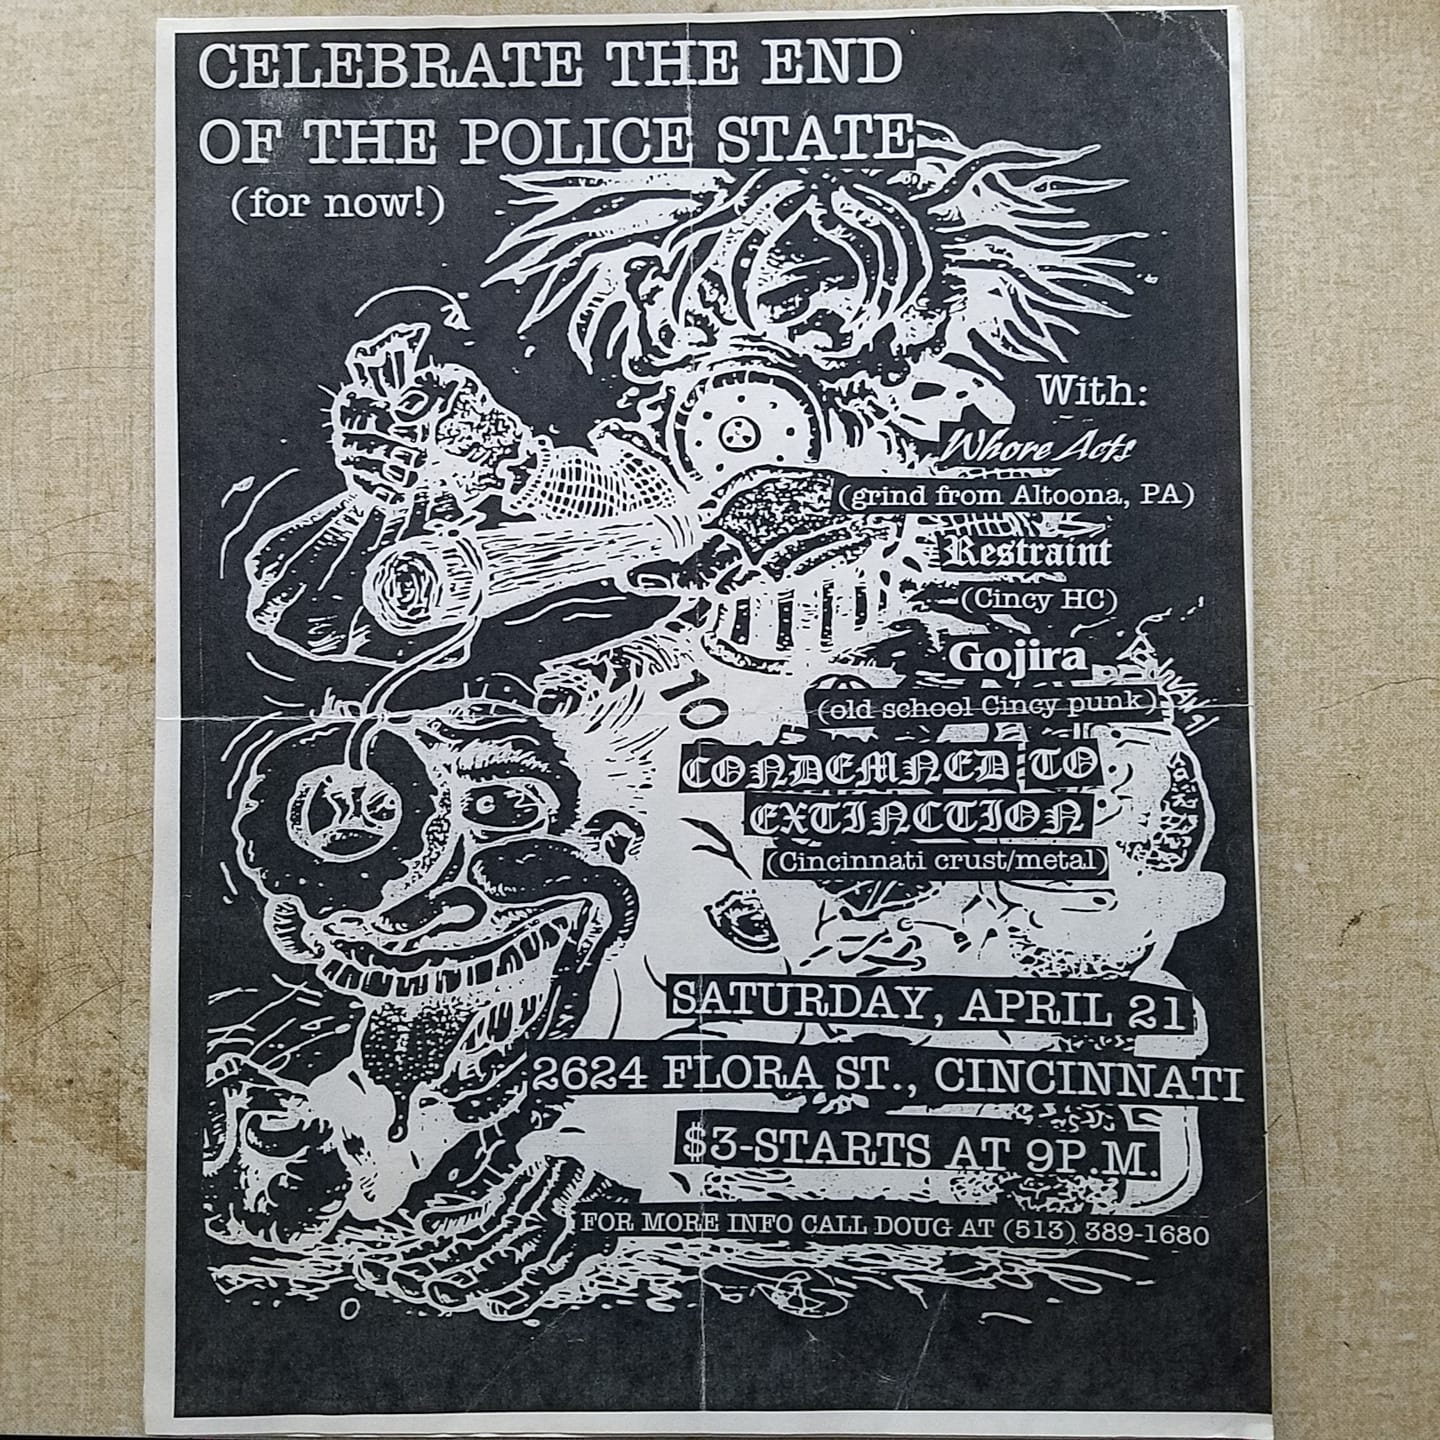 CELEBRATE THE END
OF THE POLICE STATE
(for now!)
With:
Whore Acts
(grind from Altoona, PA)
Restraint
(Cincy HC)
Gojira
(old school Cincy punk)
10
CONDEMNED TO
EXTINCTION
(Cincinnati crust/metal)
SATURDAY, APRIL 21
2624 FLORA ST., CINCINNATI
$3-STARTS AT 9P.M.
FOR MORE INFO CALL DOUG AT (513) 389-1680